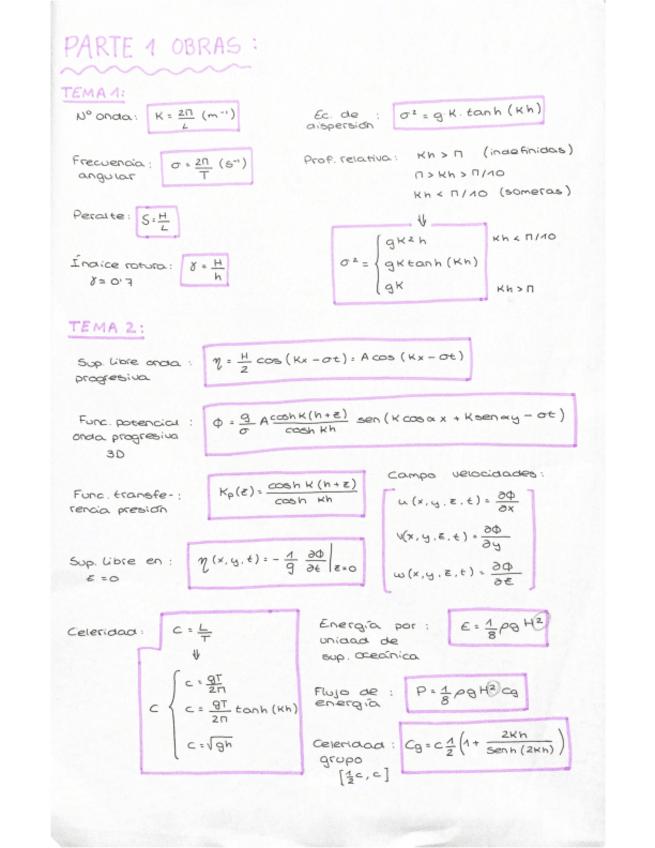 PARTE 1 OBRAS :
TEMA 1:
Nº onda : K = 2π/L (m⁻¹)
Ec. de dispersión : σ² = g·K·tanh(Kh)
Frecuencia angular : σ = 2π/T (s⁻¹)
Prof. relativa : Kh > π (indefinidas)
π > Kh > π/10
Kh < π/10 (someras)
⇓
Peralte : S = H/L
σ² = { gK²h Kh < π/10
gK tanh(Kh)
gK Kh > π
Índice rotura : γ = H/h
γ = 0'7
TEMA 2:
Sup. libre onda progresiva : η = H/2 cos(Kx - σt) = A cos(Kx - σt)
Func. potencial onda progresiva 3D : Φ = g/σ A coshK(h+z)/cosh Kh sen(K cosα x + K senα y - σt)
Func. transferencia presión : Kp(z) = cosh K(h+z)/cosh Kh
Campo velocidades :
u(x,y,z,t) = ∂Φ/∂x
v(x,y,z,t) = ∂Φ/∂y
w(x,y,z,t) = ∂Φ/∂z
Sup. libre en z = 0 : η(x,y,t) = - 1/g ∂Φ/∂t |z=0
Celeridad : C = L/T
⇓
C { C = gT/2π
C = gT/2π tanh(Kh)
C = √gh
Energía por unidad de sup. oceánica : E = 1/8 ρg H²
Flujo de energía : P = 1/8 ρg H² Cg
Celeridad grupo : Cg = C 1/2 (1 + 2Kh/senh(2Kh))
[½c, c]